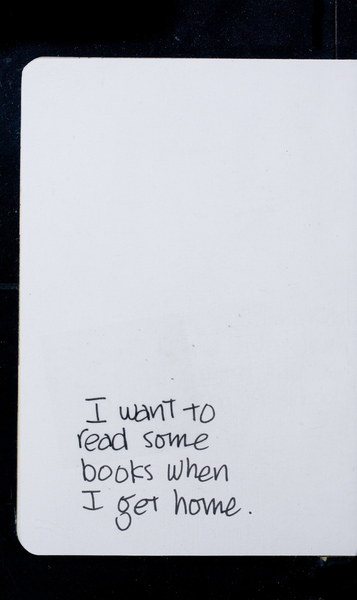 I want to
read some
books when
I get home.